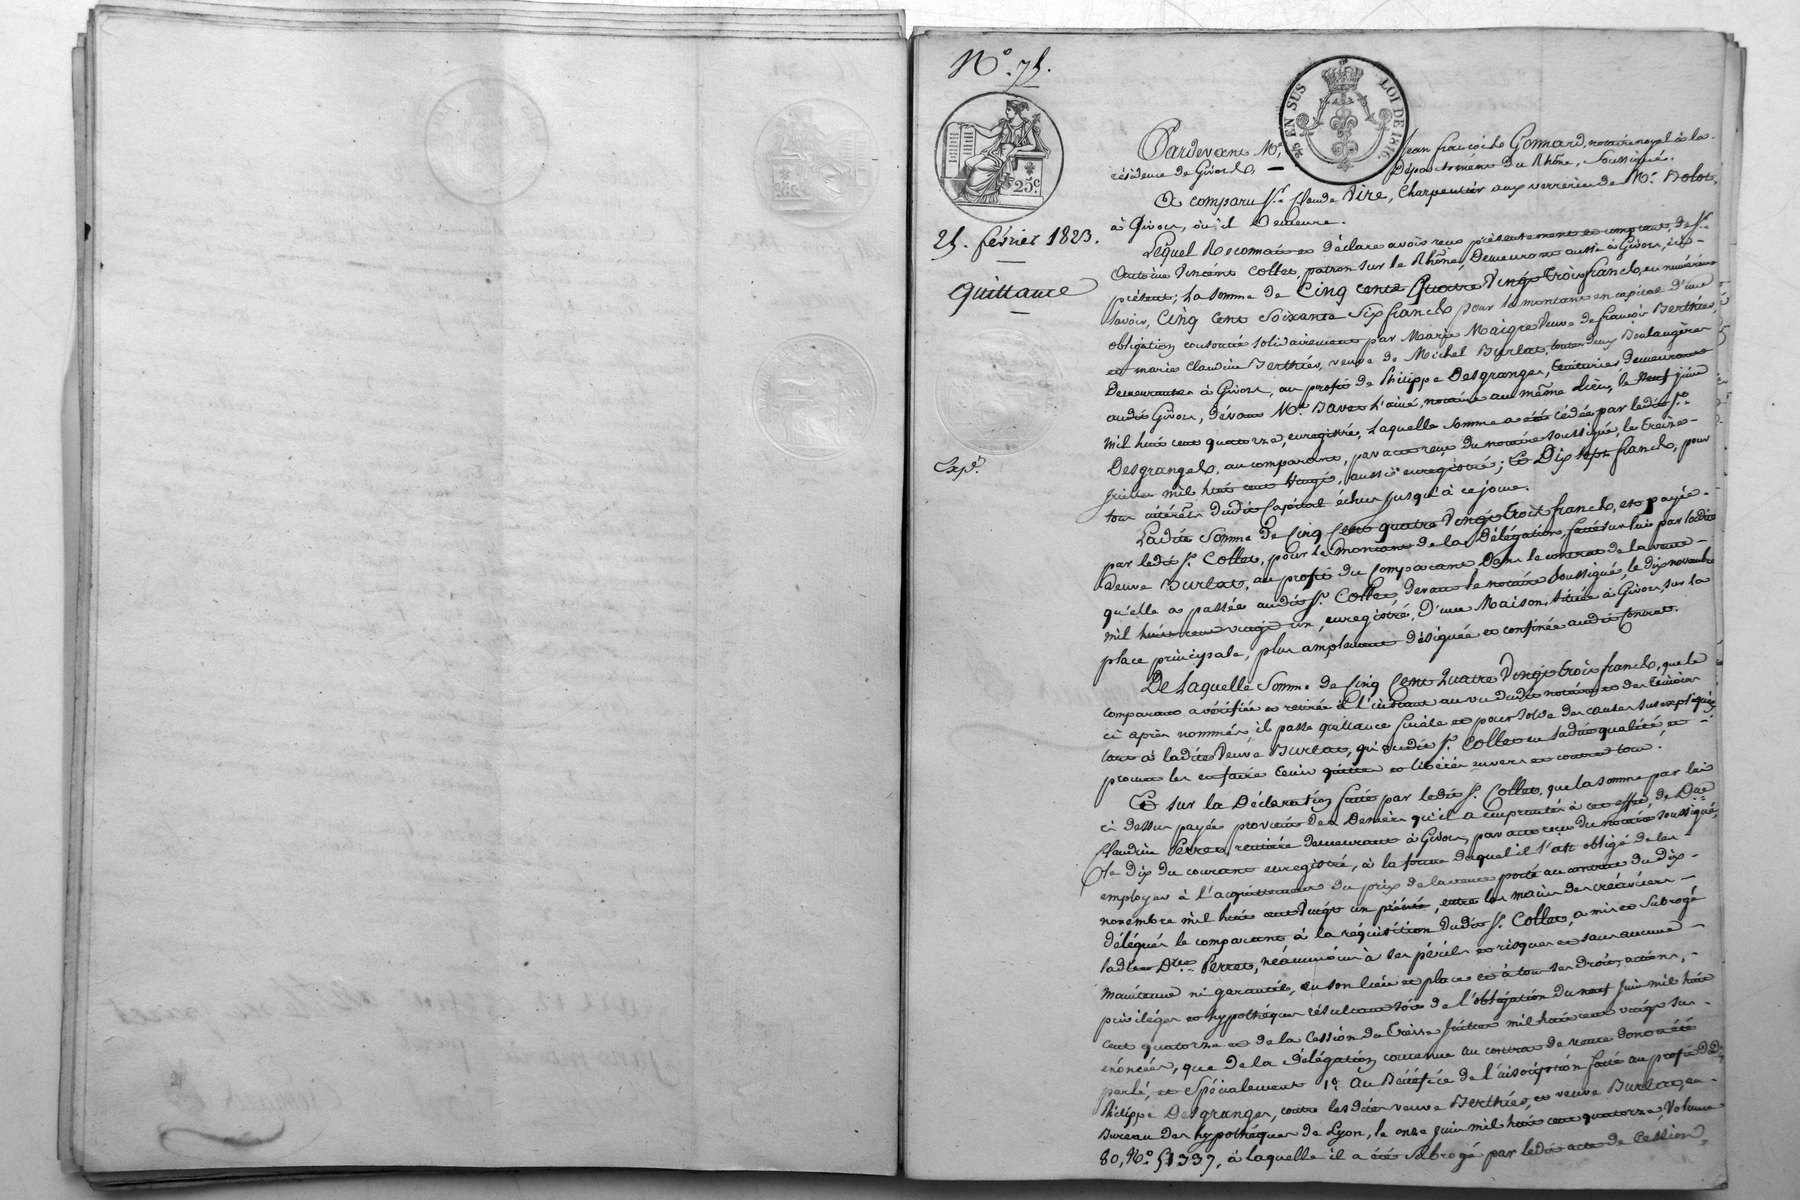 N.° 75.
EN SUS
LOI DE 1816
25.c
Pardevant M.e Jean francisle Gonnard, notaire royal à la
résidence de Givors, Département du Rhône, soussigné.
A comparu S.r Claude Vire, Charpentier aux verreries de M.r Bolot,
à Givors, où il demeure.
25. février 1823.
Lequel Reconnait et déclare avoir reçu présentement et comptant, de S.r
Antoine Vincent Collet, patron sur le Rhône, Demeurant aussi à Givors, ici
Quittance
présent; la somme de Cinq cent Quatre Vingt trois francs, en numéraire
savoir, Cinq cent soixante six francs pour le montant en capital d'une
obligation consentie solidairement par Marie Maigre Veuve de françois Berthiés,
et marie Claudine Berthiés, veuve de Michel Burlat, toutes deux Boulangères
Demeurantes à Givors, au profit de Philippe Desgranges, demeurant
audit Givors, devant M.e Bavet l'ainé, notaire au même lieu, le neuf juin
mil huit cent quatorze, enregistré, laquelle somme a été cédée par ledit S.r
Exp.n
Desgranges, au comparant, par acte reçu du notaire soussigné, le treize
juillet mil huit cent Vingt, aussi enregistré; Et Dix sept francs, pour
tous intérêts dudit Capital échus jusqu'à ce jour.
Ladite somme de Cinq Cent quatre Vingt trois francs, est payée
par ledit S.r Collet, pour le montant de la Délégation, faite sur lui par ladite
Veuve Burlat, au profit du Comparant Dans le contrat de la vente
qu'elle a passée audit S.r Collet, devant le notaire soussigné, le dix novembre
mil huit cent vingt un, enregistré, D'une Maison, située à Givors, sur la
place principale, plus amplement désignée et confinée audit Contrat.
De laquelle Somme de Cinq Cent Quatre Vingt trois francs, que le
comparant a vérifiée et retirée à l'instant au vu dudit notaire et des témoins
ci après nommés, il passe quittance finale et pour solde des causes susexpliquées
tant à ladite Veuve Burlat, qu'audit S.r Collet en sadite qualité, et
promet les en faire tenir quitte et libérés envers et contre tous.
Et sur la Déclaration faite par ledit S.r Collet, que la somme par lui
ci dessus payée provient des Deniers qu'il a empruntés à cet effet, de D.lle
Claudine Perret, rentière demeurant à Givors, par acte reçu du notaire soussigné,
le dix du courant enregistré, à la forme duquel il s'est obligé de les
employer à l'acquittement du prix de la vente porté au contrat du dix
novembre mil huit cent vingt un précité, entre les mains des créanciers
délégués le comparant à la réquisition dudit S.r Collet, a mis et subrogé
ladite D.lle Perret, néanmoins à ses périls et risques et sans aucune
maintenue ni garantie, en son lieu et place et à tous ses droits, actions,
privilèges et hypothèques résultant soit de l'obligation du neuf juin mil huit
cent quatorze et de la Cession du treize juillet mil huit cent vingt sus
énoncées, que de la délégation contenue au contrat de vente dont a été
parlé, et spécialement 1.° au Bénéfice de l'inscription faite au profit dud.
Philippe Desgranges, contre lesdites veuve Berthiés, et veuve Burlat, au
Bureau des hypothèques de Lyon, le onze juin mil huit cent quatorze, Volume
80, N.° 51337, à laquelle il a été subrogé par ledit acte de Cession